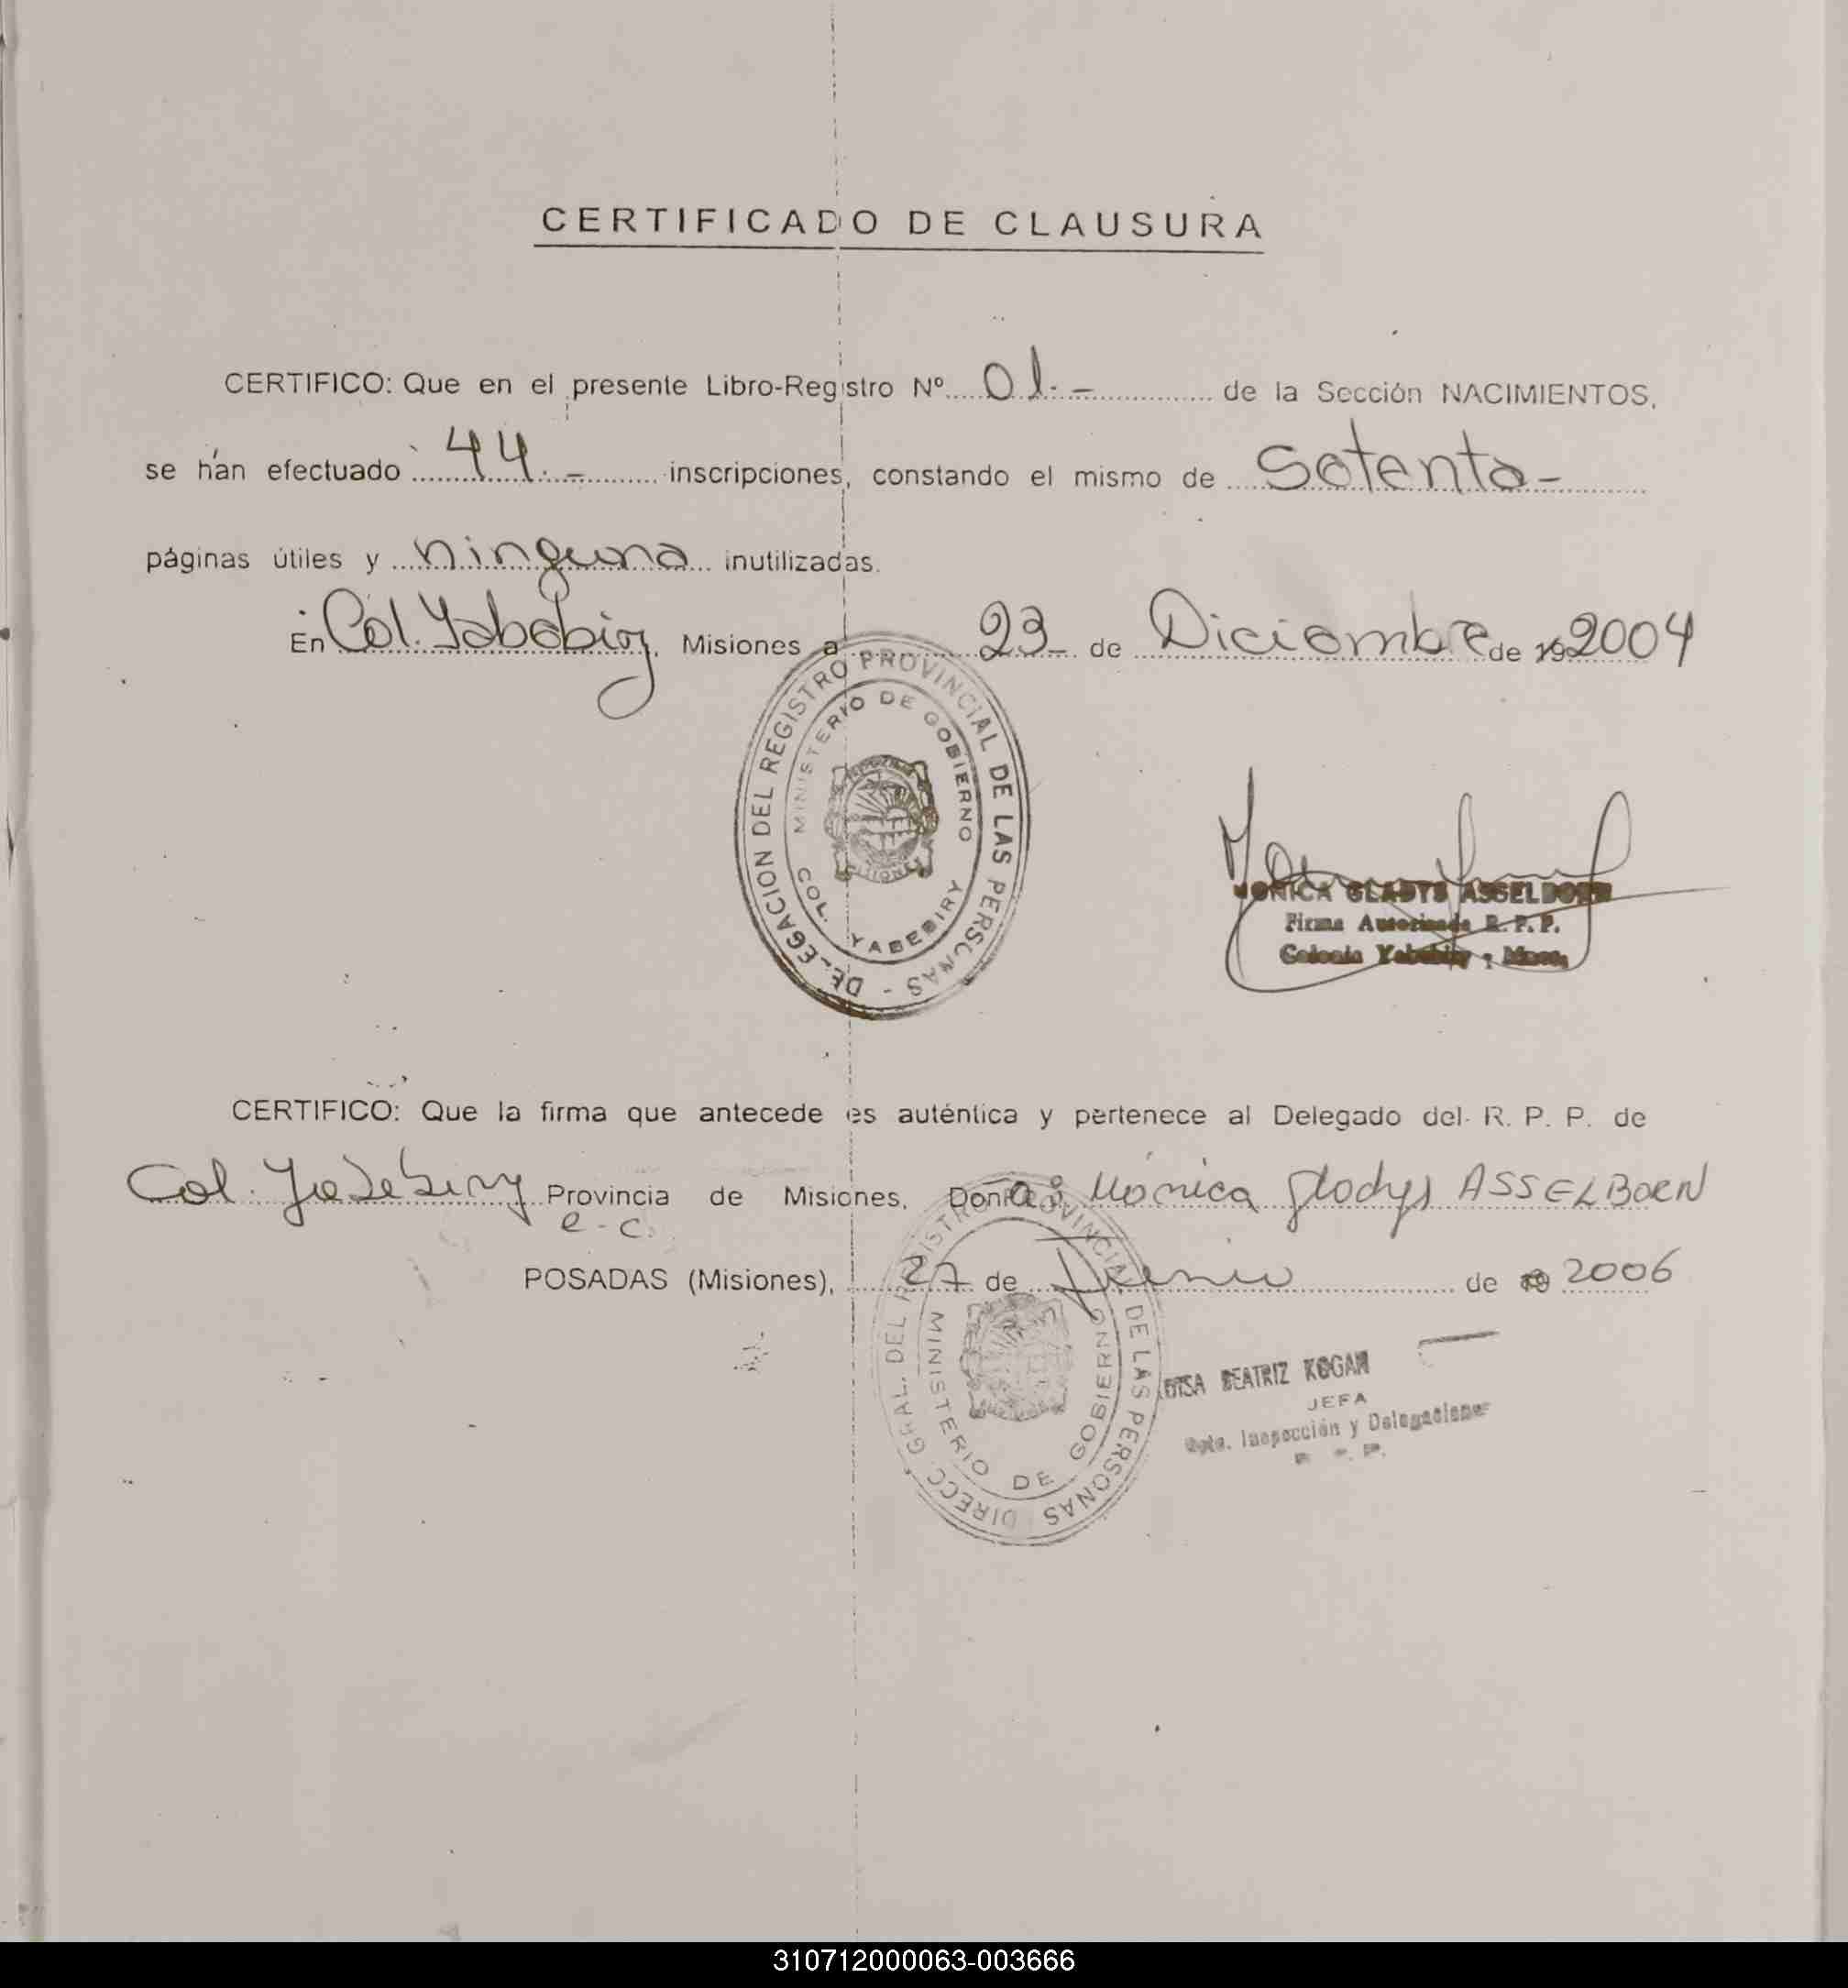 CERTIFICADO DE CLAUSURA
CERTIFICO: Que en el presente Libro-Registro Nº 01.- de la Sección NACIMIENTOS,
se han efectuado 44.- inscripciones, constando el mismo de Setenta-
páginas útiles y ninguna inutilizadas.
En Col. Yabebiry, Misiones a 23 de Diciembre de 19 2004
DELEGACION DEL REGISTRO PROVINCIAL DE LAS PERSONAS
MINISTERIO DE GOBIERNO
COL. YABEBIRY
MONICA GLADYS ASSELBORN
Firma Autorizada R.P.P.
Colonia Yabebiry - Mnes.
CERTIFICO: Que la firma que antecede es auténtica y pertenece al Delegado del R. P. P. de
Col. Yabebiry Provincia de Misiones, Doña: Mónica Gladys ASSELBORN
e-c
POSADAS (Misiones), 27 de Junio de 2006
DIRECC. GRAL. DEL REGISTRO PROVINCIAL DE LAS PERSONAS
MINISTERIO DE GOBIERNO
BEATRIZ KOGAN
JEFA
Dpto. Inspección y Delegaciones
310712000063-003666